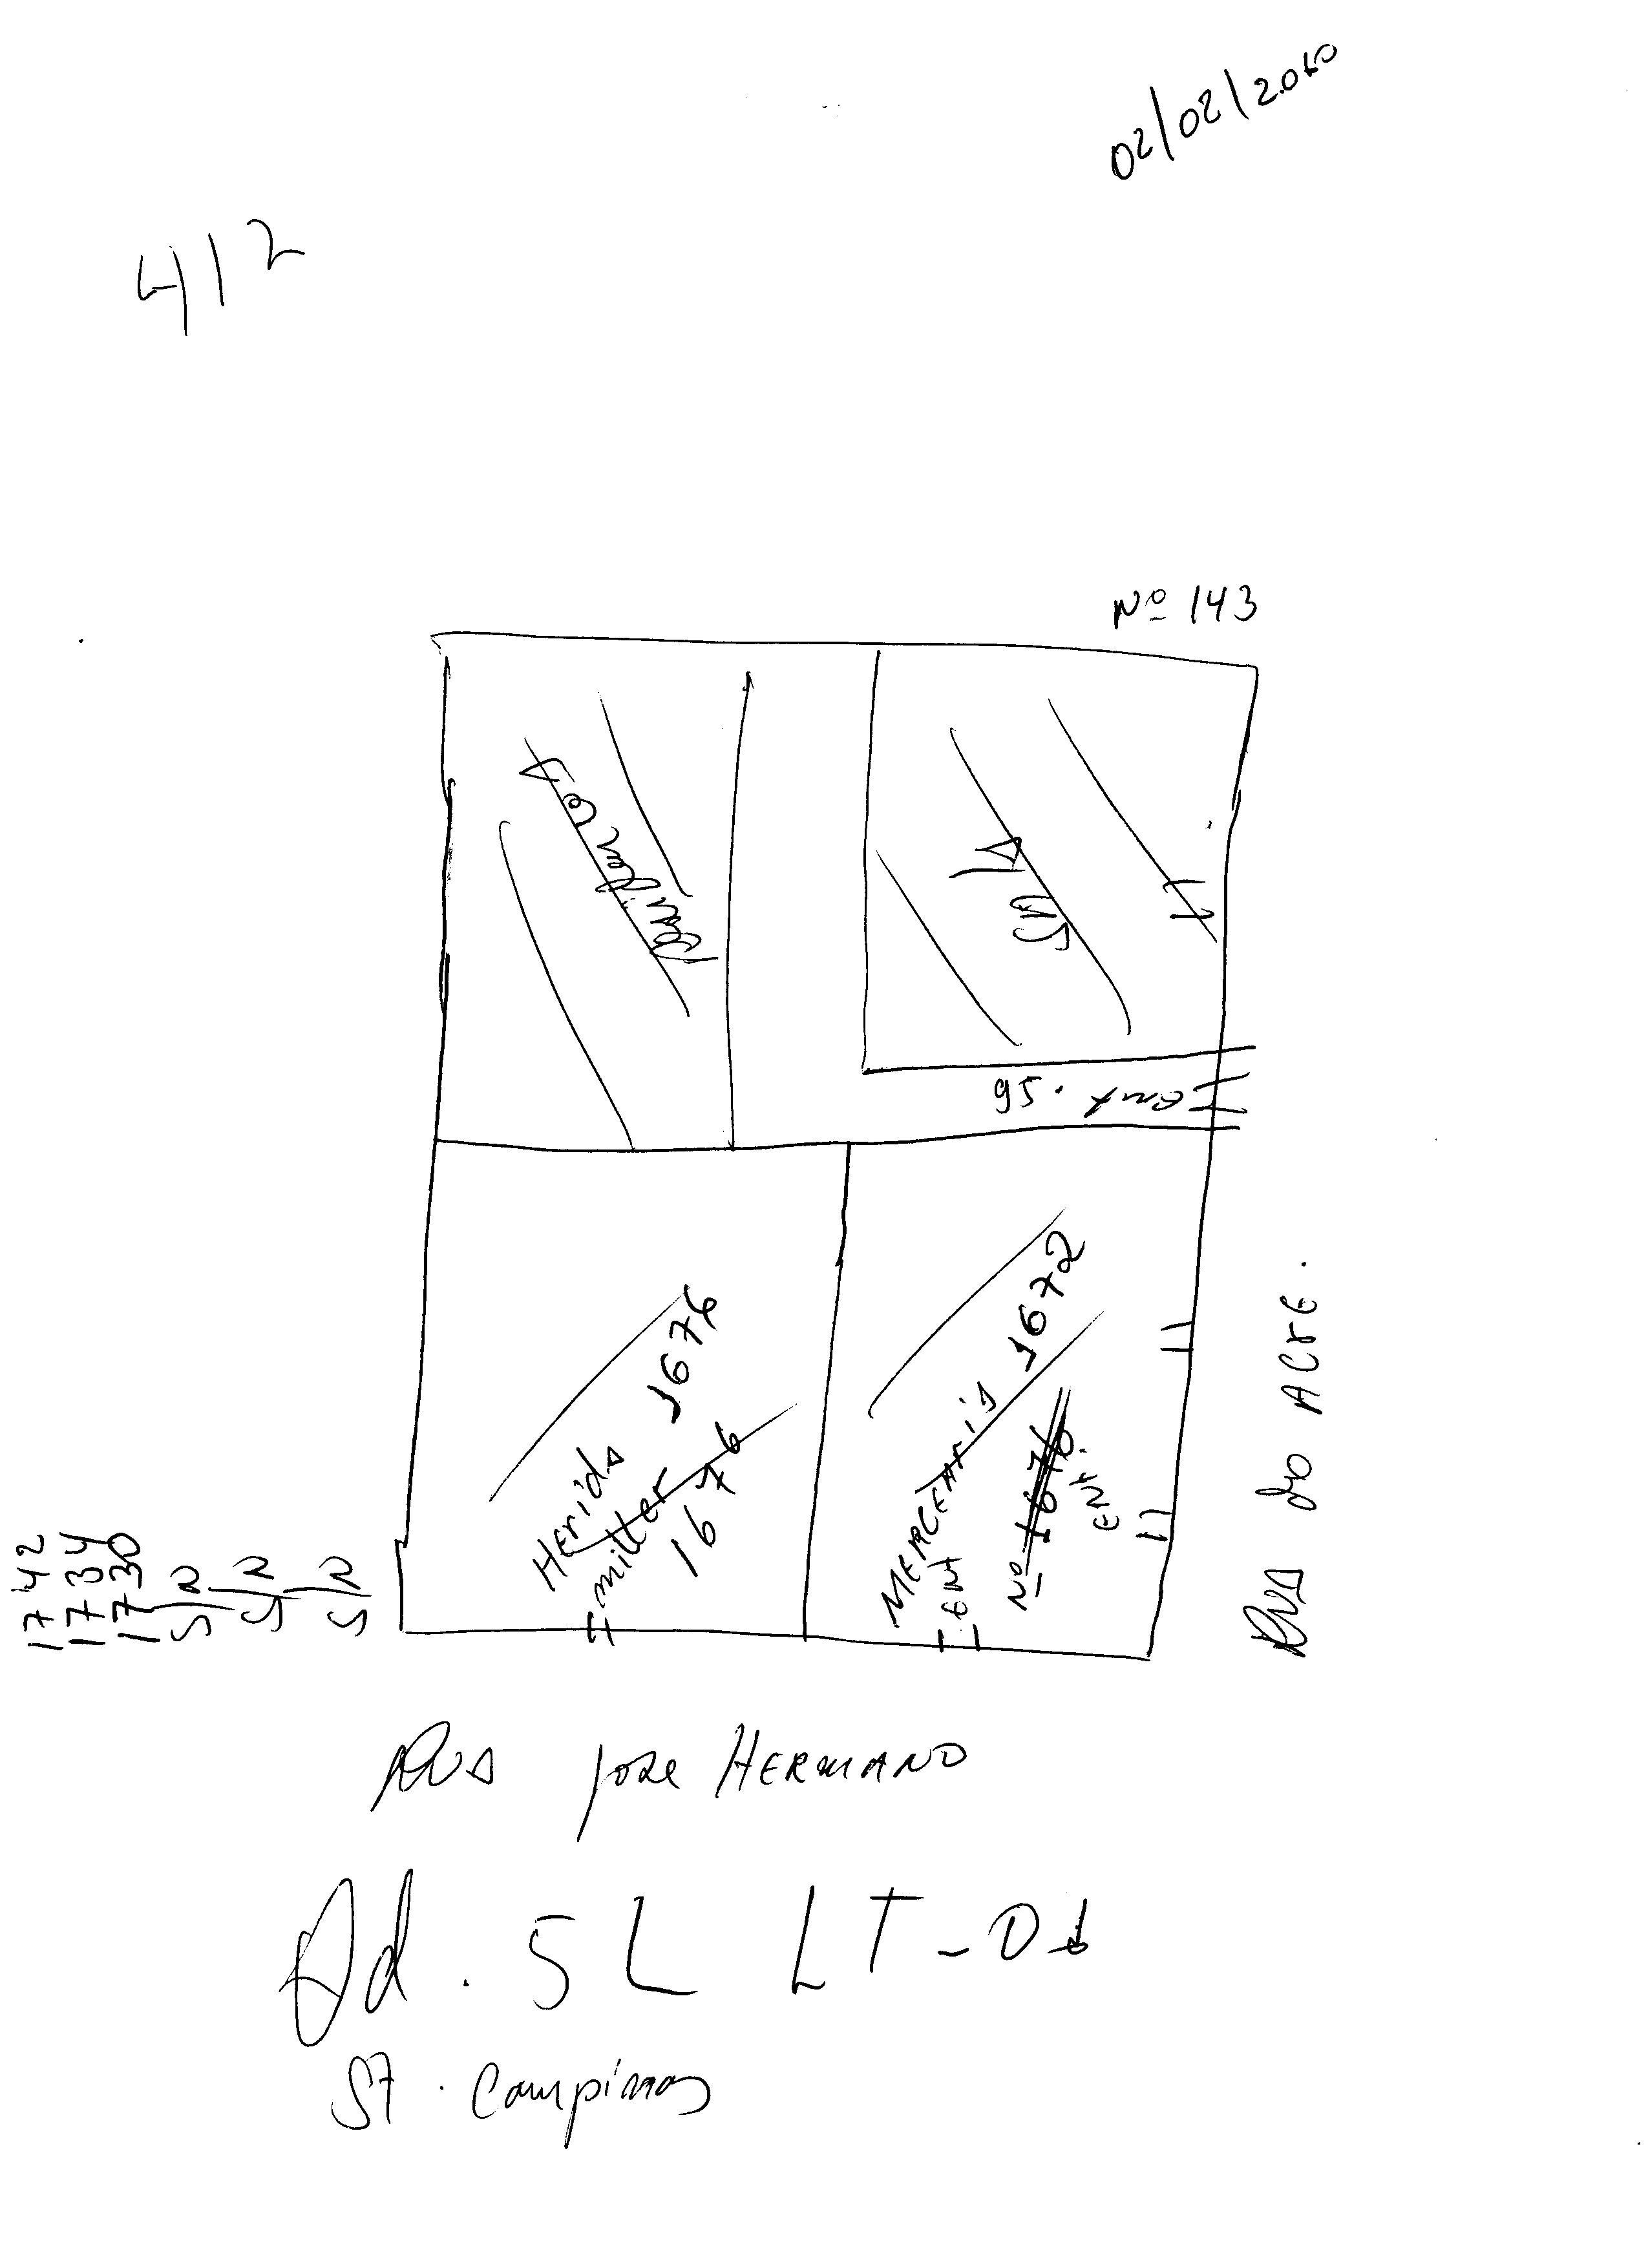 02/02/2010
412
Nº 143
95. ent
1676
Herida
miller
1676
Mercearia 1672
Nº 1676
ENT.
ENT
RUA do ACRE.
1742
1734
1730
S/N
S/N
S/N
RUA José HERMANO
Qd. 5L LT-01
ST. Campinas